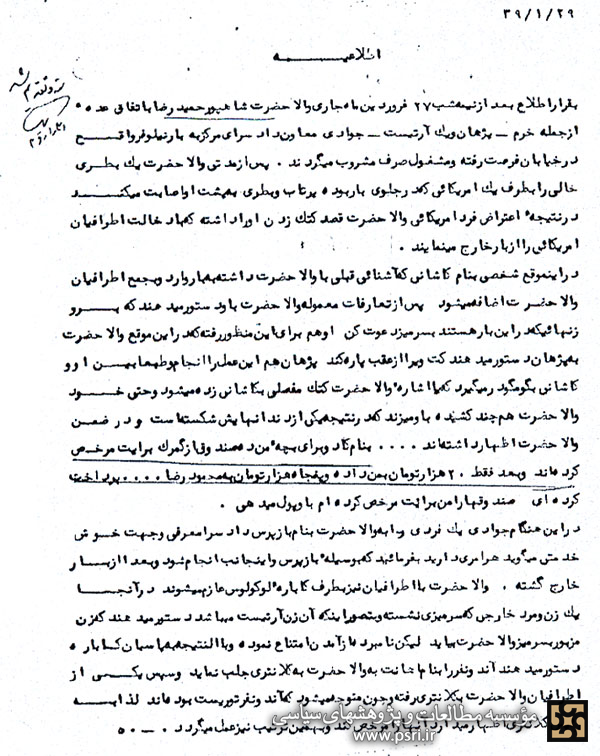 ۳۹/۱/۲۹
اطلاعیـــه
بقرار اطلاع بعد از نیمه شب ۲۷ فروردین ماه جاری والا حضرت شاهپور حمید رضا باتفاق عده
از جمله خرم ـ پژهان ویک آرتیست ـ جوادی معاون داد سرای مرکز به بار نیلوفر واقع
در خیابان فرصت رفته ومشغول صرف مشروب میگردند . پس از مدتی والا حضرت یک بطری
خالی را بطرف یک امریکائی که در جلوی بار بوده پرتاب وبطری به پشت او اصابت میکند
در نتیجه اعتراض فرد امریکائی والا حضرت قصد کتک زدن او را داشته که با دخالت اطرافیان
امریکائی را از بار خارج مینمایند .
در اینموقع شخصی بنام کاشانی که آشنائی قبلی با والا حضرت داشته به بار وارد وبجمع اطرافیان
والا حضرت اضافه میشود پس از تعارفات معموله والا حضرت باو دستور میدهند که برو
زنهائیکه در این بار هستند بسر میز دعوت کن او هم برای این منظور رفته که در این موقع والا حضرت
به پژهان دستور میدهند کت ویرا از عقب پاره کند پژهان هم این عمل را انجام و طبعا بین او و
کاشانی بگو مگو در میگیرد که با اشاره والا حضرت کتک مفصلی بکاشانی زده میشود وحتی خود
والا حضرت هم چند کشیده باو میزند که در نتیجه یکی از دندانهایش شکسته است و در ضمن
والا حضرت اظهار داشته اند .... بنام کادو برای بچه من ده صندوق از گمرک برایت مرخص
کرده اند وبعد فقط ۲۰ هزار تومان بمن داده وپنجاه هزار تومان به محمود رضا .... پرداخت
کرده ای صندوقها را من برایت مرخص کرده ام باو پول میدهی .
در این هنگام جوادی یک فردی را به والا حضرت بنام بازپرس داد سرا معرفی وجهت خوش
خدمتی میگوید هر امری دارید بفرمائید که بوسیله بازپرس واینجانب انجام شود وبعد از بار
خارج گشته ، والا حضرت با اطرافیان نیز بطرف کاباره لوکولوس عازم میشوند در آنجا
یک زن ومرد خارجی که سر میزی نشسته وبتصور اینکه آن زن آرتیست میباشد دستور میدهند که زن
مزبور بسر میز والا حضرت بیاید لیکن نامبرده از آمدن امتناع نموده وبا النتیجه به پاسبان کاباره
دستور میدهند آن دو نفر را بنام اهانت به والا حضرت به کلانتری جلب نماید وسپس یکی از
اطرافیان والا حضرت بکلانتری رفته وچون متوجه میشود که آن دو نفر توریست بوده اند لذا به
کلانتری اظهار میدارد آنها را مرخص کنند وبهمین ترتیب نیز عمل میگردد . ۵۰ـ
مؤسسه مطالعات و پژوهشهای سیاسی
www.psri.ir